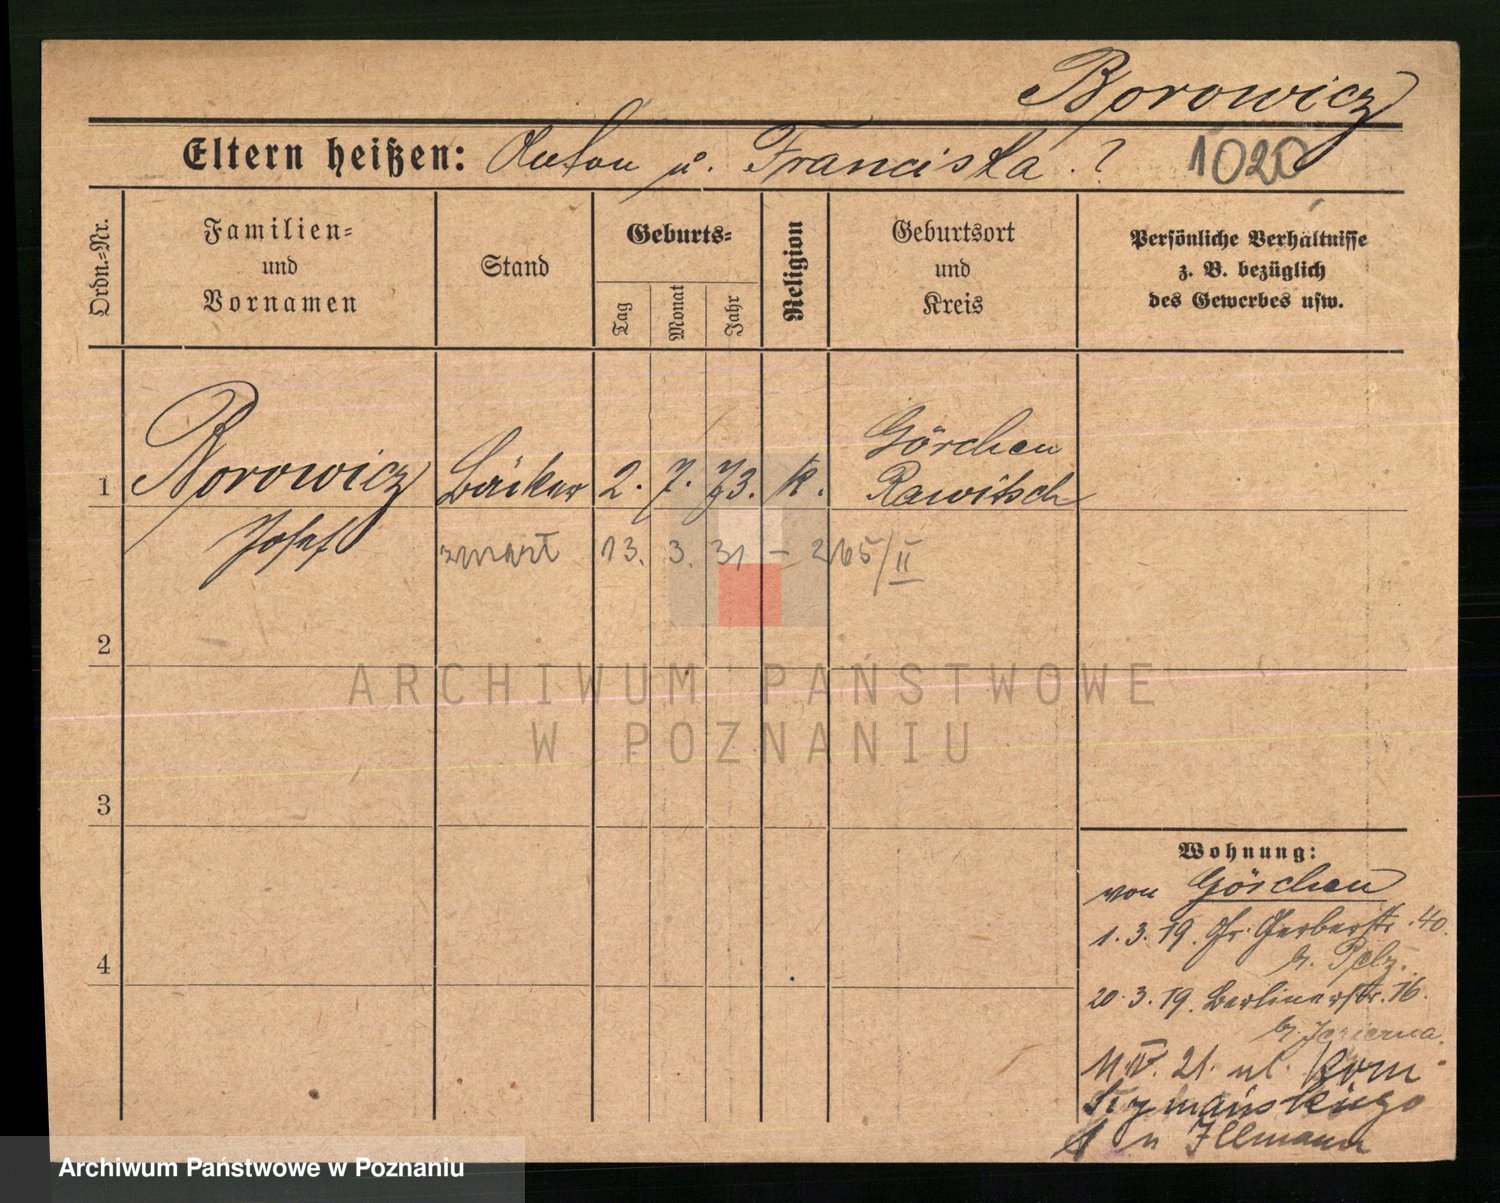 Borowicz
Eltern heißen: Anton u. Franciska. ? 1020
Ordn.-Nr.
Familien-
und
Vornamen
Stand
Geburts-
Tag
Monat
Jahr
Religion
Geburtsort
und
Kreis
Persönliche Verhältnisse
z. B. bezüglich
des Gewerbes usw.
Görchen
1 Borowicz Bäcker 2. 7. 73. k. Rawitsch
Josef
zmarł 13. 3. 31 - 265/II
2
ARCHIWUM PAŃSTWOWE
W POZNANIU
3
Wohnung:
von Görchen
1. 3. 19. Gr. Gerberstr. 40.
b. Pelz.
20. 3. 19. Berlinerstr. 16.
b. Jezierna.
11. IV. 21. ul. Rom
Szymańskiego
u Illmann
4
Archiwum Państwowe w Poznaniu